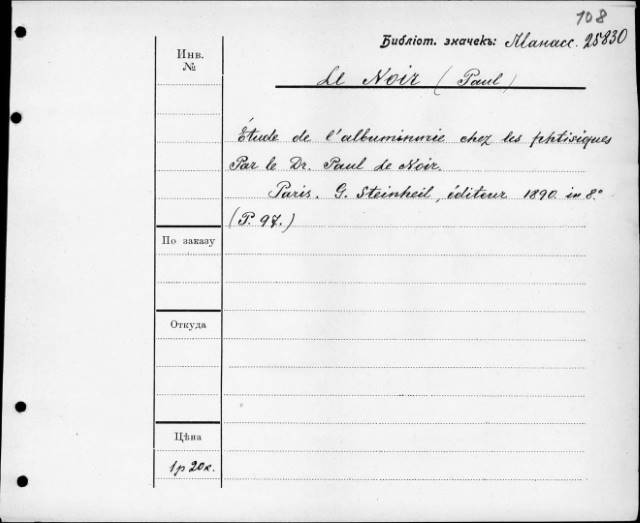 108
Библіот. значекъ: Манасс. 25830
Инв.
№
Le Noir (Paul)
Étude de l'albuminurie chez les phtisiques
Par le Dr. Paul Le Noir.
Paris. G. Steinheil, éditeur 1890 in 8.°
(P. 97.)
По заказу
Откуда
Цѣна
1 р 20 к.